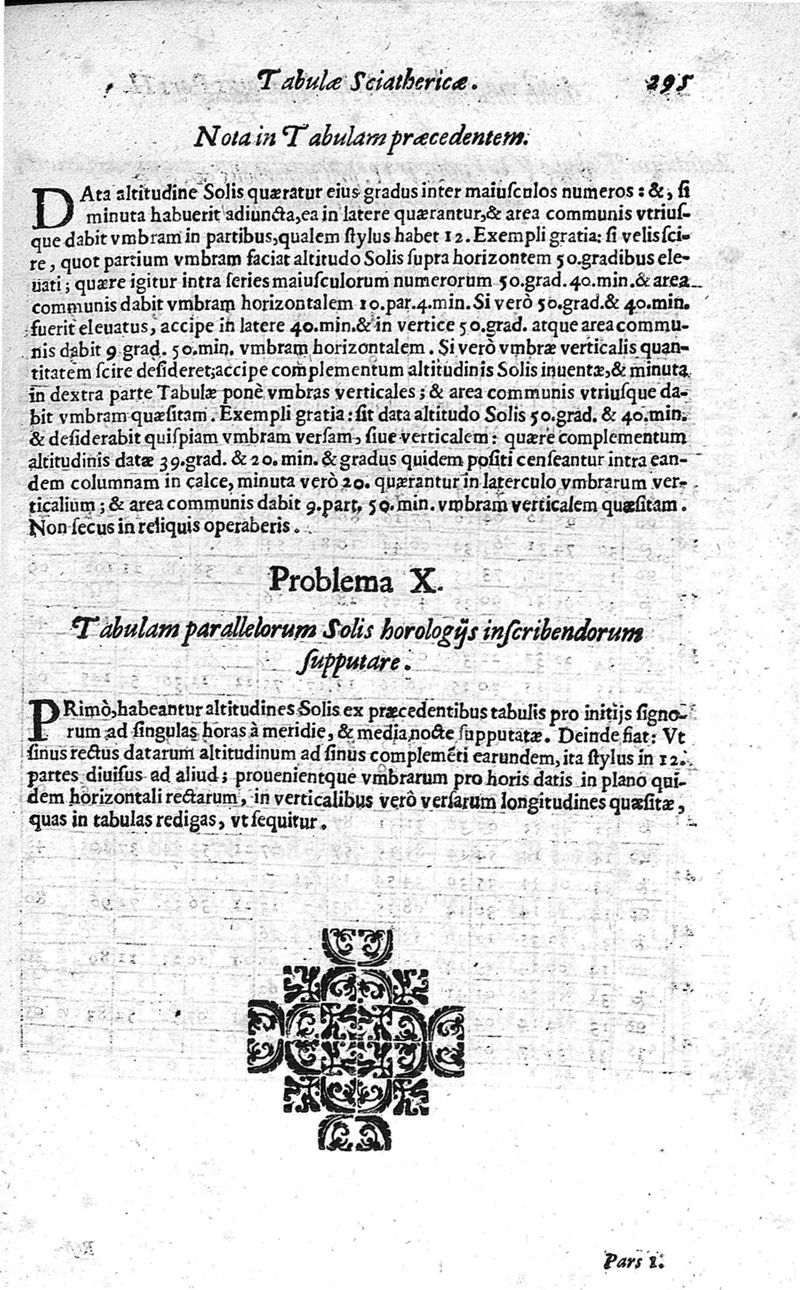 Tabulæ Sciathericæ. 295
Nota in Tabulam præcedentem.
DAta altitudine Solis quæratur eius gradus inter maiuſculos numeros : &, ſi
minuta habuerit adiuncta, ea in latere quærantur, & area communis vtriuſ-
que dabit vmbram in partibus, qualem ſtylus habet 12. Exempli gratia: ſi velis ſci-
re, quot partium vmbram faciat altitudo Solis ſupra horizontem 50. gradibus ele-
uati; quære igitur intra ſeries maiuſculorum numerorum 50. grad. 40. min. & area
communis dabit vmbram horizontalem 10. par. 4. min. Si verò 50. grad. & 40. min.
fuerit eleuatus, accipe in latere 40. min. & in vertice 50. grad. atque area commu-
nis dabit 9 grad. 50. min. vmbram horizontalem. Si verò vmbræ verticalis quan-
titatem ſcire deſideret; accipe complementum altitudinis Solis inuentæ, & minuta
in dextra parte Tabulæ ponè vmbras verticales; & area communis vtriuſque da-
bit vmbram quæſitam. Exempli gratia: ſit data altitudo Solis 50. grad. & 40. min.
& deſiderabit quiſpiam vmbram verſam, ſiue verticalem: quære complementum
altitudinis datæ 39. grad. & 20. min. & gradus quidem poſiti cenſeantur intra ean-
dem columnam in calce, minuta verò 20. quærantur in laterculo vmbrarum ver-
ticalium; & area communis dabit 9. part. 50. min. vmbram verticalem quæſitam.
Non ſecus in reliquis operaberis.
Problema X.
Tabulam parallelorum Solis horologijs inſcribendorum
ſupputare.
PRimò, habeantur altitudines Solis ex præcedentibus tabulis pro initijs ſigno-
rum ad ſingulas horas à meridie, & media nocte ſupputatæ. Deinde fiat: Vt
ſinus rectus datarum altitudinum ad ſinus complemēti earundem, ita ſtylus in 12.
partes diuiſus ad aliud; prouenientque vmbrarum pro horis datis in plano qui-
dem horizontali rectarum, in verticalibus verò verſarum longitudines quæſitæ,
quas in tabulas redigas, vt ſequitur.
Pars I.